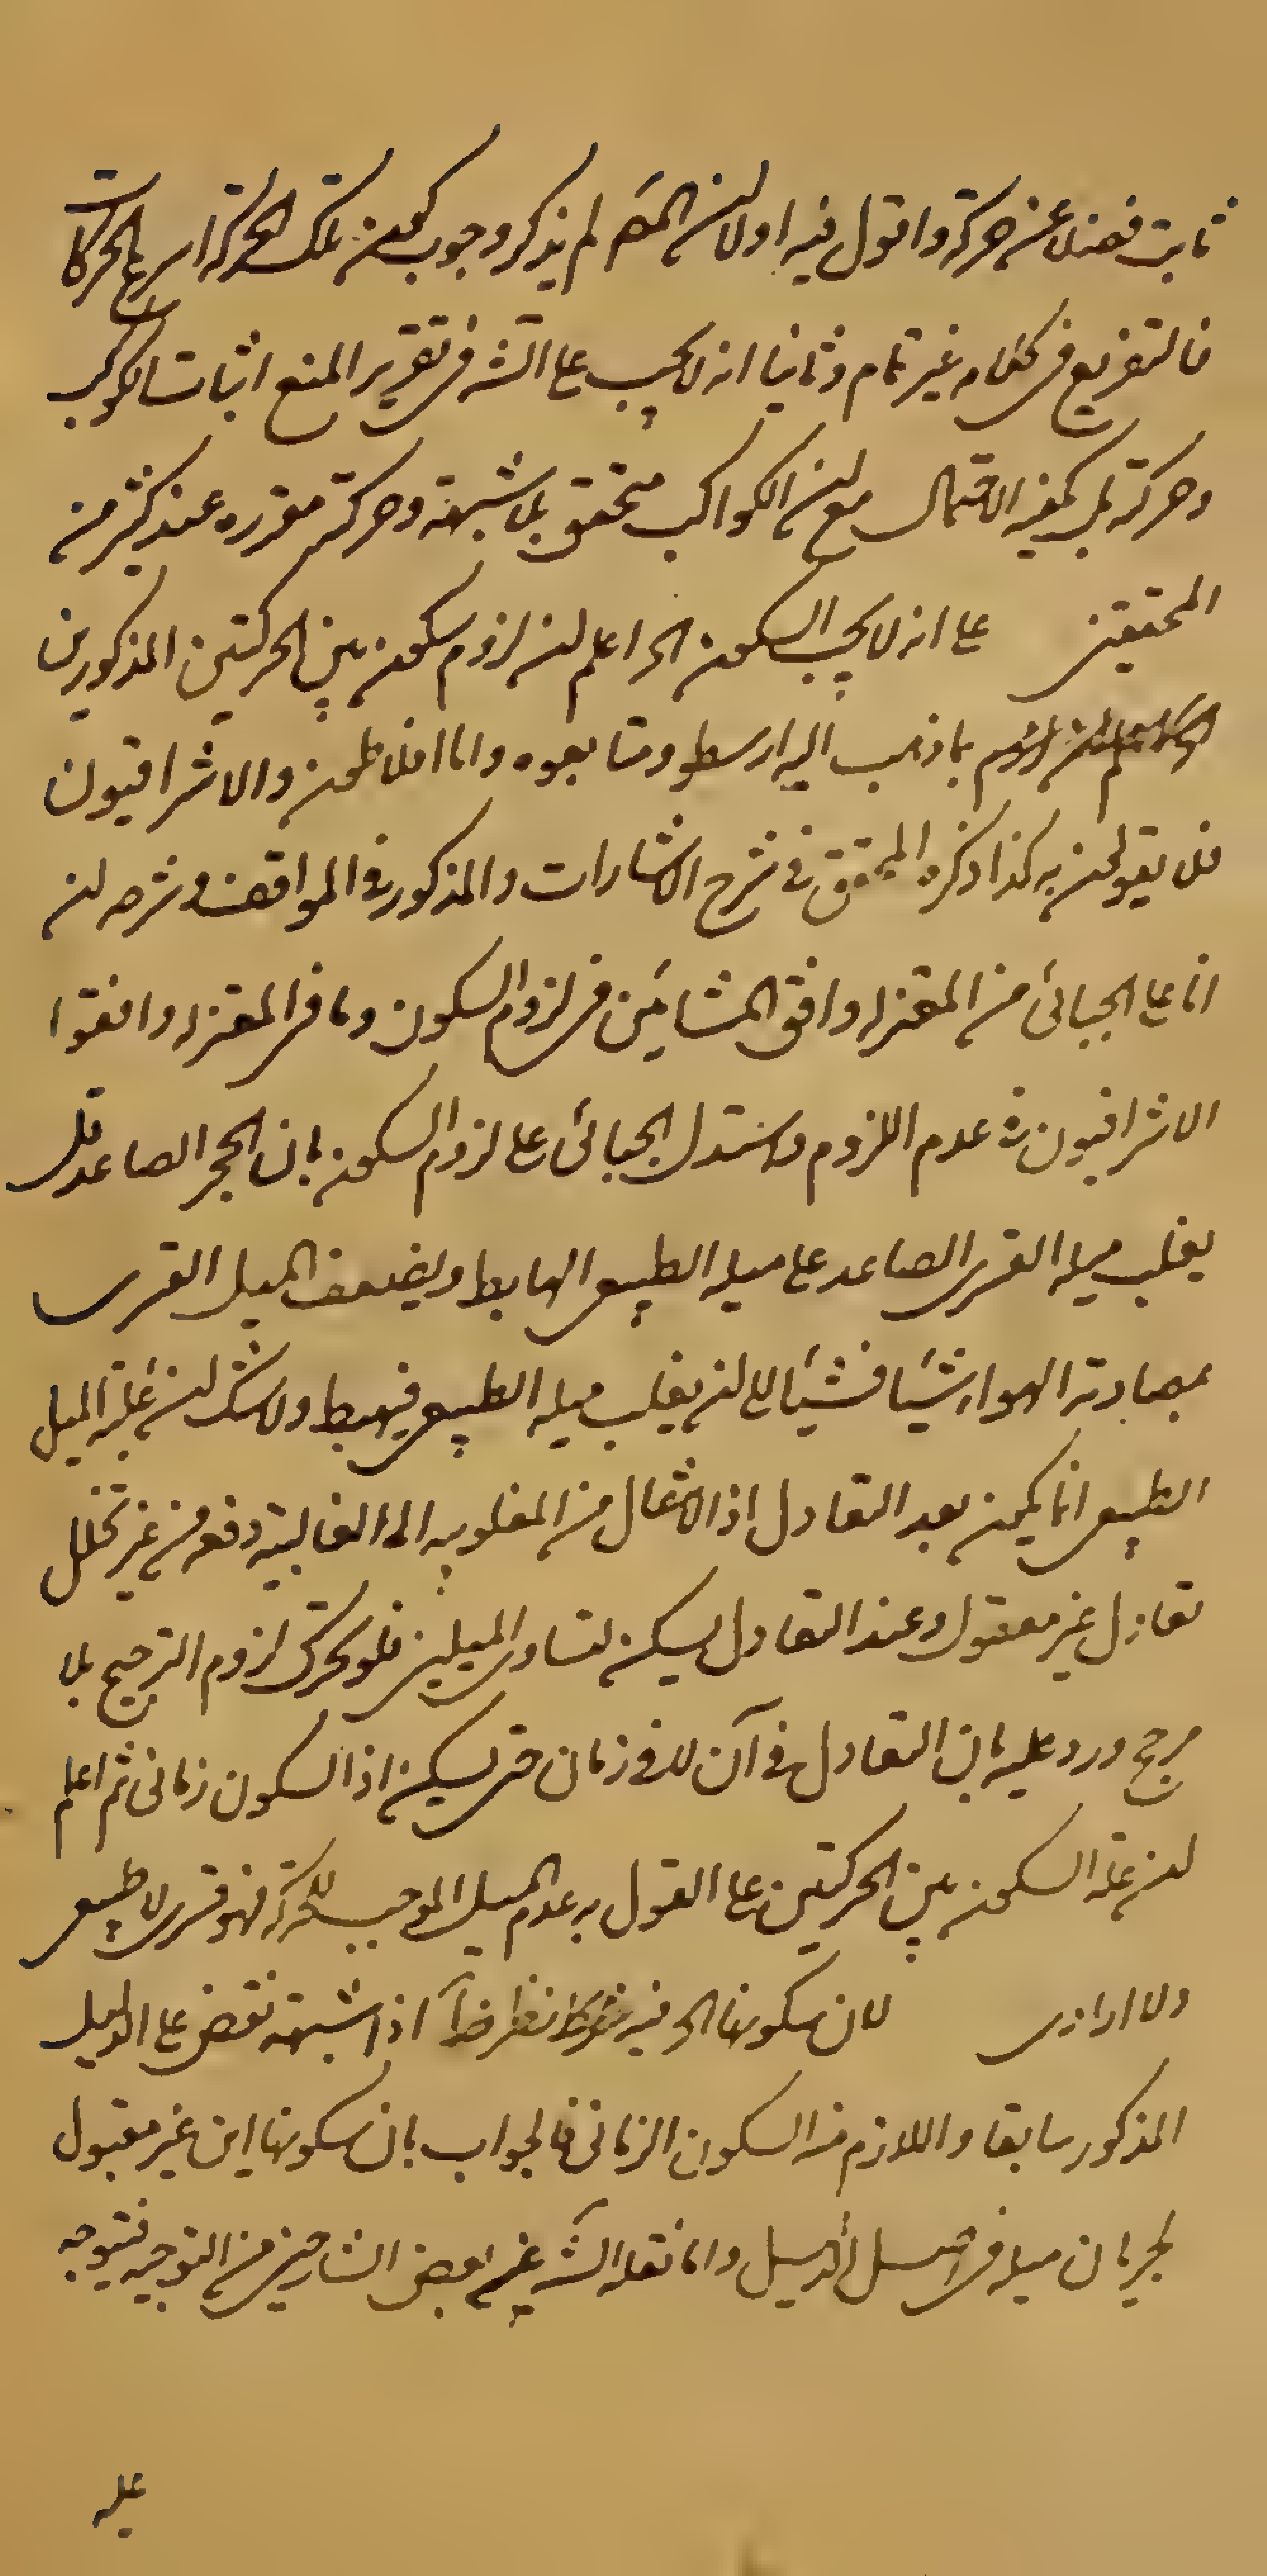 ثابت فضلا عن حركته واقول فيه اولا ان المص لم يذكر وجوب كون تلك الحركة اسرع الحركات
فالتفريع في كلامه غير تام وثانيا انه لا يجب على الش في تقرير المنع اثبات الكوكب
وحركته بل يكفيه الاحتمال مع ان الكواكب متحقق بلا شبهة وحركته مقرره عند كثير من
المحققين على انه لا يجب السكون الخ اعلم ان لزوم سكون بين الحركتين المذكورين
بما ذهب اليه ارسطو ومتابعوه واما افلاطون والاشراقيون
فلا يقولون به كذا ذكره المحقق في شرح الاشارات والمذكور في المواقف وشرحه ان
ابا على الجبائى من المعتزله وافق المشائين في لزوم السكون وما في المعتزله وافقوا
الاشراقيون في عدم اللزوم واستدل الجبائى على لزوم السكون بان الحجر الصاعد
يغلب ميله القسرى الصاعد على ميله الطبيعى الهابط ويضعف الميل القسرى
بمصادمة الهواء شيئا فشيئا الى ان يغلب ميله الطبيعى فيهبط ولا شك ان غلبة الميل
الطبيعى انما يكون بعد التعادل اذ الانتقال من المغلوبيه الى الغالبية دفعه من غير تخلل
تعادل غير معقول وعند التعادل يسكن لتساوى الميلين فلو تحرك لزوم الترجيح بلا
مرجح ورد عليه بان التعادل في آن لا في زمان حتى يسكن اذ السكون زمانى ثم اعلم
ان علة السكون بين الحركتين على القول به عدم الميل الموجب للحركة فهو قسرى لا طبيعى
ولا ارادى لان سكونها الخ فيه نظر اذ الشبهة نقض على الدليل
المذكور سابقا واللازم منه السكون الزمانى فالجواب بان سكونها اين غير مقبول
لجريان ميله في اصل الدليل واما نقله الش عن بعض الشارحين من التوجيه فتيوجه
عليه